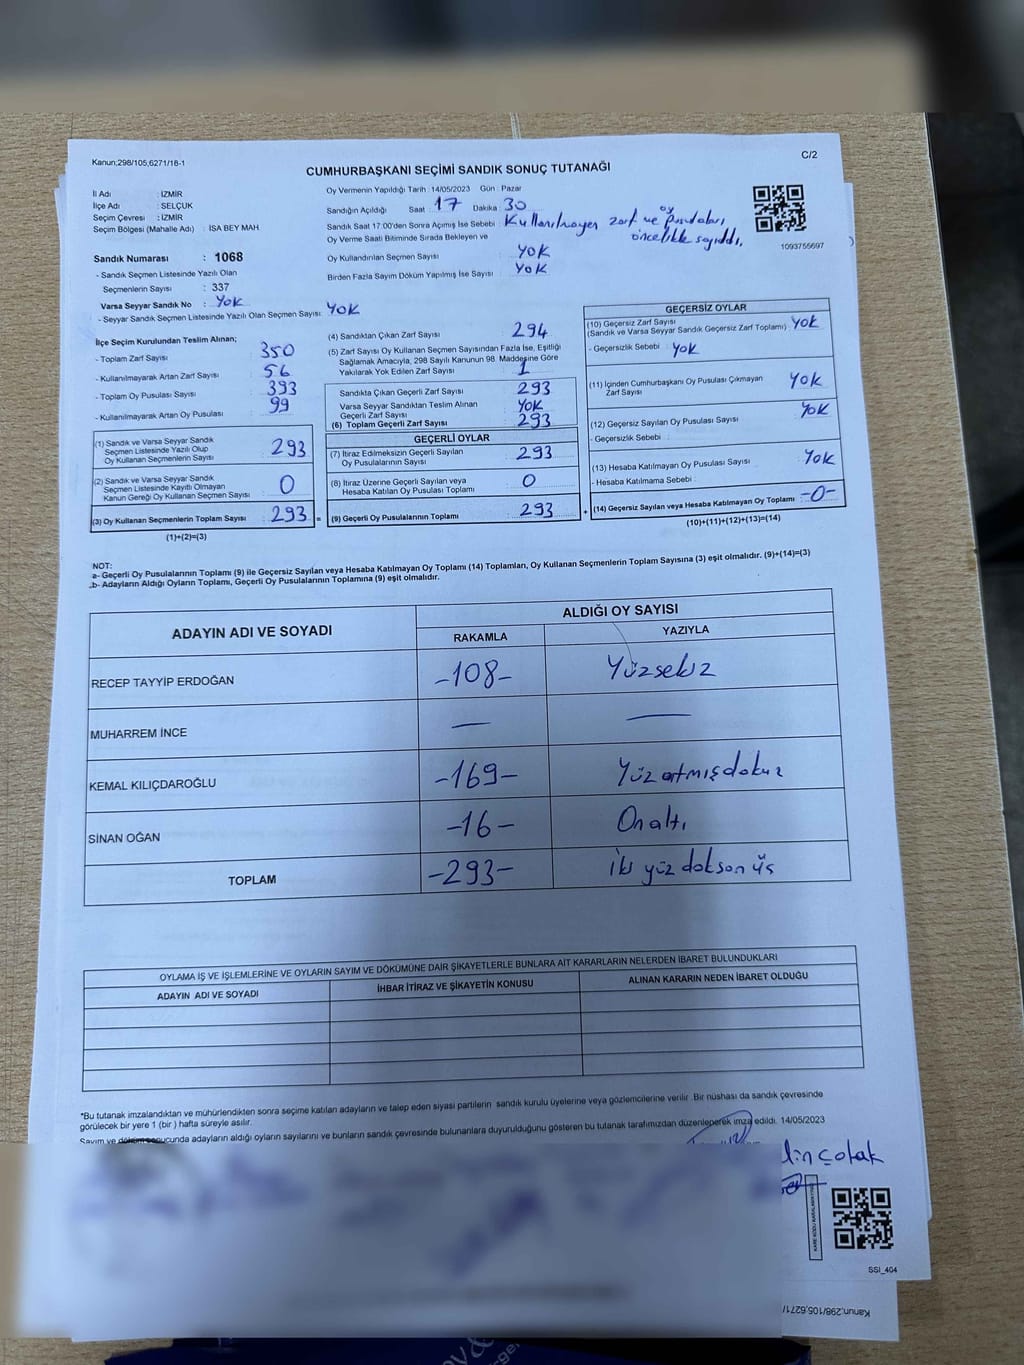 Kanun;298/105,6271/18-1
C/2
CUMHURBAŞKANI SEÇİMİ SANDIK SONUÇ TUTANAĞI
İl Adı : İZMİR
İlçe Adı : SELÇUK
Seçim Çevresi : İZMİR
Seçim Bölgesi (Mahalle Adı) : ISA BEY MAH
Sandık Numarası : 1068
- Sandık Seçmen Listesinde Yazılı Olan
Seçmenlerin Sayısı : 337
Varsa Seyyar Sandık No : Yok
- Seyyar Sandık Seçmen Listesinde Yazılı Olan Seçmen Sayısı: Yok
Oy Vermenin Yapıldığı Tarih : 14/05/2023 Gün : Pazar
Sandığın Açıldığı Saat : 17 Dakika : 30
Sandık Saat 17:00'den Sonra Açılmış İse Sebebi : Kullanılmayan zarf ve oy pusulaları
öncelikle sayıldı.
Oy Verme Saati Bitiminde Sırada Bekleyen ve
Oy Kullandırılan Seçmen Sayısı : Yok
Birden Fazla Sayım Döküm Yapılmış İse Sayısı : Yok
1093755697
İlçe Seçim Kurulundan Teslim Alınan;
- Toplam Zarf Sayısı : 350
- Kullanılmayarak Artan Zarf Sayısı : 56
- Toplam Oy Pusulası Sayısı : 393
- Kullanılmayarak Artan Oy Pusulası : 99
(1) Sandık ve Varsa Seyyar Sandık
Seçmen Listesinde Yazılı Olup
Oy Kullanan Seçmenlerin Sayısı : 293
(2) Sandık ve Varsa Seyyar Sandık
Seçmen Listesinde Kayıtlı Olmayan
Kanun Gereği Oy Kullanan Seçmen Sayısı : 0
(3) Oy Kullanan Seçmenlerin Toplam Sayısı : 293 =
(1)+(2)=(3)
(4) Sandıktan Çıkan Zarf Sayısı : 294
(5) Zarf Sayısı Oy Kullanan Seçmen Sayısından Fazla İse, Eşitliği
Sağlamak Amacıyla, 298 Sayılı Kanunun 98. Maddesine Göre
Yakılarak Yok Edilen Zarf Sayısı : 1
Sandıkta Çıkan Geçerli Zarf Sayısı : 293
Varsa Seyyar Sandıktan Teslim Alınan
Geçerli Zarf Sayısı : Yok
(6) Toplam Geçerli Zarf Sayısı : 293
GEÇERLİ OYLAR
(7) İtiraz Edilmeksizin Geçerli Sayılan
Oy Pusulalarının Sayısı : 293
(8) İtiraz Üzerine Geçerli Sayılan veya
Hesaba Katılan Oy Pusulası Toplamı : 0
(9) Geçerli Oy Pusulalarının Toplamı : 293 +
GEÇERSİZ OYLAR
(10) Geçersiz Zarf Sayısı
(Sandık ve Varsa Seyyar Sandık Geçersiz Zarf Toplamı) : Yok
- Geçersizlik Sebebi : Yok
(11) İçinden Cumhurbaşkanı Oy Pusulası Çıkmayan
Zarf Sayısı : Yok
(12) Geçersiz Sayılan Oy Pusulası Sayısı : Yok
- Geçersizlik Sebebi :
(13) Hesaba Katılmayan Oy Pusulası Sayısı : Yok
- Hesaba Katılmama Sebebi :
(14) Geçersiz Sayılan veya Hesaba Katılmayan Oy Toplamı : -0-
(10)+(11)+(12)+(13)=(14)
NOT:
a- Geçerli Oy Pusulalarının Toplamı (9) ile Geçersiz Sayılan veya Hesaba Katılmayan Oy Toplamı (14) Toplamları, Oy Kullanan Seçmenlerin Toplam Sayısına (3) eşit olmalıdır. (9)+(14)=(3)
b- Adayların Aldığı Oyların Toplamı, Geçerli Oy Pusulalarının Toplamına (9) eşit olmalıdır.
ADAYIN ADI VE SOYADI
ALDIĞI OY SAYISI
RAKAMLA YAZIYLA
RECEP TAYYİP ERDOĞAN -108- Yüzsekiz
MUHARREM İNCE — —
KEMAL KILIÇDAROĞLU -169- Yüzatmışdokuz
SİNAN OĞAN -16- Onaltı
TOPLAM -293- İki yüz doksan üç
OYLAMA İŞ VE İŞLEMLERİNE VE OYLARIN SAYIM VE DÖKÜMÜNE DAİR ŞİKAYETLERLE BUNLARA AİT KARARLARIN NELERDEN İBARET BULUNDUKLARI
ADAYIN ADI VE SOYADI İHBAR İTİRAZ VE ŞİKAYETİN KONUSU ALINAN KARARIN NEDEN İBARET OLDUĞU
*Bu tutanak imzalandıktan ve mühürlendikten sonra seçime katılan adayların ve talep eden siyasi partilerin sandık kurulu üyelerine veya gözlemcilerine verilir. Bir nüshası da sandık çevresinde
görülecek bir yere 1 (bir) hafta süreyle asılır.
Sayım ve döküm sonucunda adayların aldığı oyların sayılarını ve bunların sandık çevresinde bulunanlara duyurulduğunu gösteren bu tutanak tarafımızdan düzenlenerek imza edildi. 14/05/2023
Çolak
SSI_404
Kanun;298/105,6271/